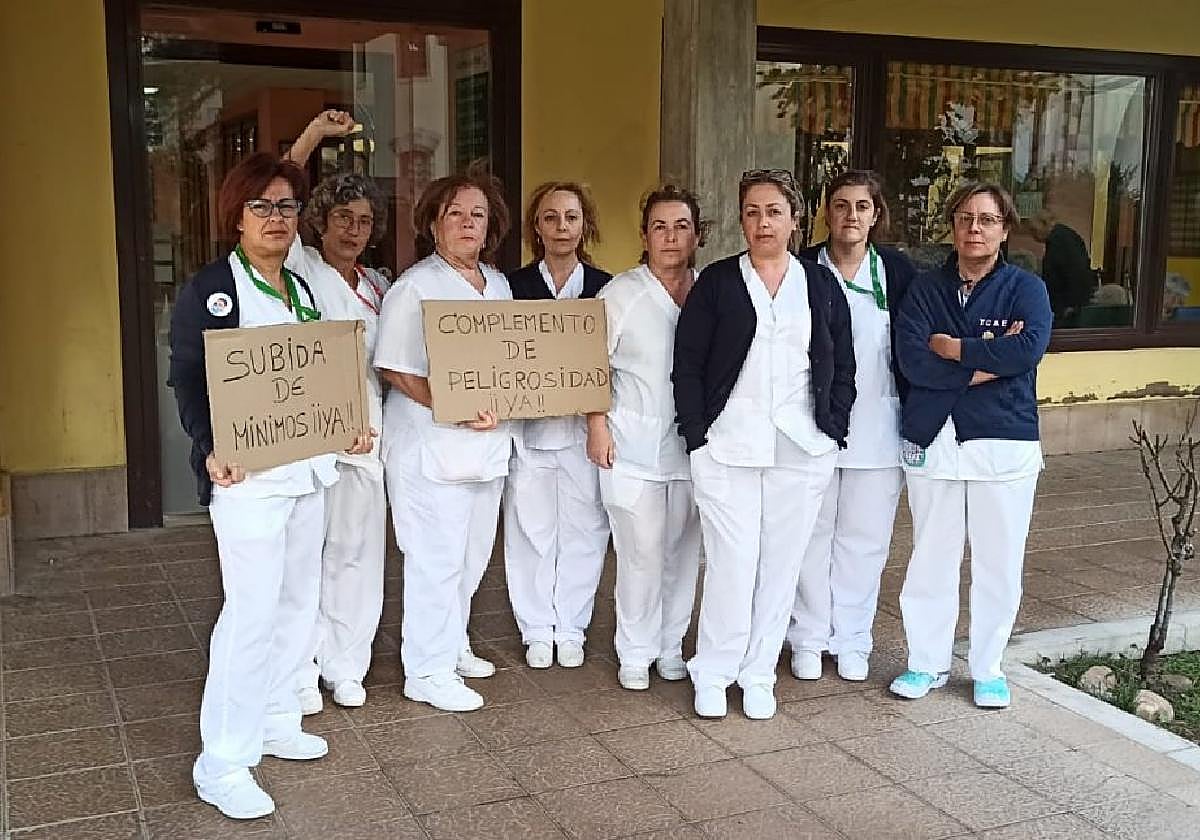 SUBIDA
DE
MÍNIMOS ¡¡YA!!
COMPLEMENTO
DE
PELIGROSIDAD
¡¡YA!!
TCAE